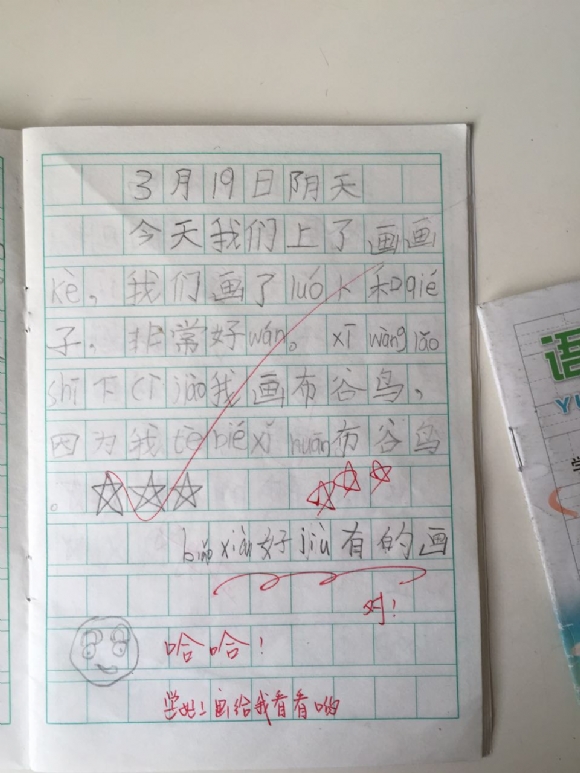 3月19日阴天
今天我们上了画画
kè,我们画了luó卜和qié
子.非常好wán。xī wàng lǎo
shī下cì jiāo我画布谷鸟,
因为我tè bié xǐ huān布谷鸟
。
biǎo xiàn好jiù有的画
对!
哈哈!
学好了画给我看看哟
语
YU
学